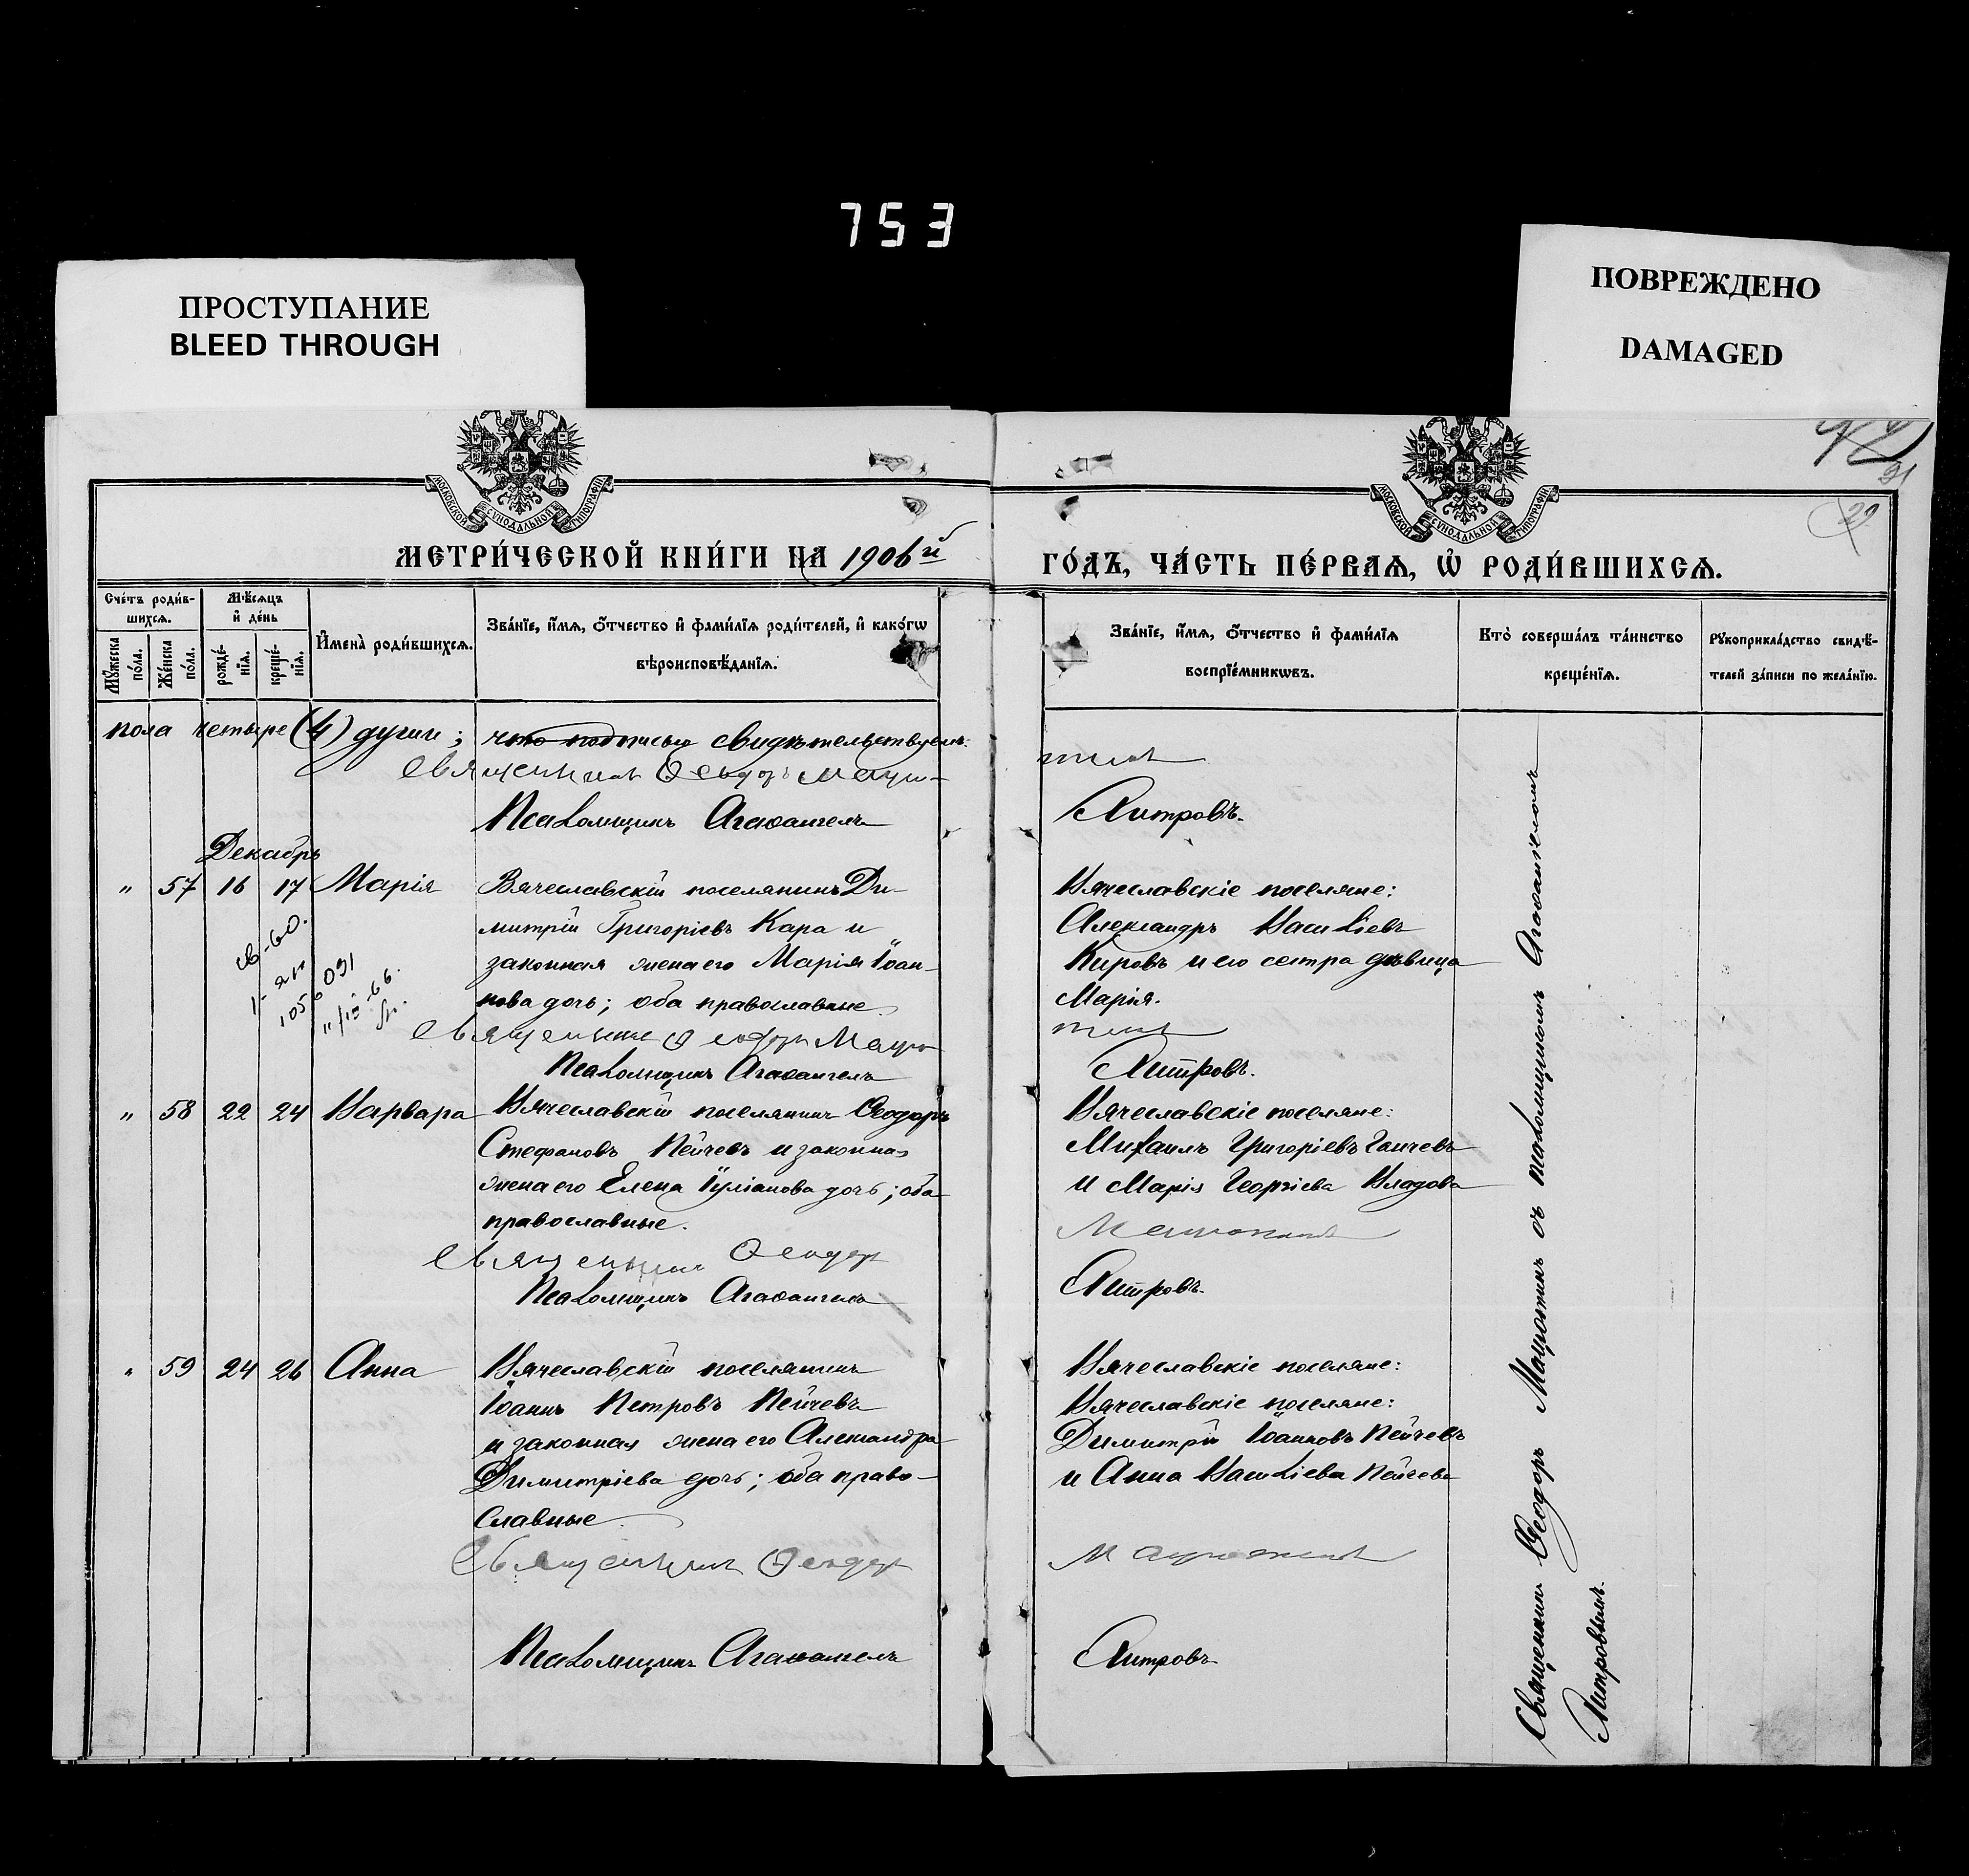 753
ПРОСТУПАНИЕ
BLEED THROUGH
ПОВРЕЖДЕНО
DAMAGED
МОСКОВСКОЙ СѴНОДАЛЬНОЙ ТИПОГРАФІИ
МОСКОВСКОЙ СѴНОДАЛЬНОЙ ТИПОГРАФІИ
29
МЕТРИ́ЧЕСКОЙ КНИ́ГИ НА 1906й
ГО́ДЪ, ЧА́СТЬ ПЕ́РВАѦ, Ѡ҆ РОДИ́ВШИХСѦ.
Сче́тъ роди́в-
шихсѧ.
Мꙋ́жеска по́ла.
Же́нска по́ла.
Мѣ́сѧцъ
и҆ де́нь
рожде́-
нїѧ.
креще́-
нїѧ.
И҆мена̀ роди́вшихсѧ.
Зва́нїе, и҆́мѧ, ѻ҆́тчество и҆ фами́лїѧ роди́телей, и҆ како́гѡ
вѣроисповѣ́данїѧ.
Зва́нїе, и҆́мѧ, ѻ҆́тчество и҆ фами́лїѧ
воспрїе́мникѡвъ.
Кто̀ соверша́лъ та́инство
креще́нїѧ.
Рꙋкоприкла́дство свидѣ́-
телей за́писи по жела́нїю.
пола четыре (4) души; что подписью свидѣтельствуемъ:
Священникъ Ѳеодоръ Мацю-
тинъ
Псаломщикъ Агаѳангелъ
Хитровъ.
Декабрь
" 57 16 17 Марія
Вячеславскій поселянинъ Ди-
митрій Григоріевъ Кара и
законная жена его Марія Іоан-
нова дочь; оба православные.
Священникъ Ѳеодоръ Мацю-
Псаломщикъ Агаѳангелъ
Вячеславскіе поселяне:
Александръ Василіевъ
Кировъ и его сестра дѣвица
Марія.
тинъ
Хитровъ.
" 58 22 24 Варвара
Вячеславскій поселянинъ Ѳеодоръ
Стефановъ Пейчевъ и законная
жена его Елена Іуліанова дочь; оба
православные.
Священникъ Ѳеодоръ
Псаломщикъ Агаѳангелъ
Вячеславскіе поселяне:
Михаилъ Григоріевъ Ганчевъ
и Марія Георгіева Владова
Мацютинъ
Хитровъ.
" 59 24 26 Анна
Вячеславскій поселянинъ
Іоаннъ Петровъ Пейчевъ
и законная жена его Александра
Димитріева дочь; оба право-
славные.
Священникъ Ѳеодоръ
Псаломщикъ Агаѳангелъ
Вячеславскіе поселяне:
Вячеславскіе поселяне:
Димитрій Іоанновъ Пейчевъ
и Анна Василіева Пейчева
Мацютинъ
Хитровъ
Священникъ Ѳеодоръ Мацютинъ съ псаломщикомъ Агаѳангеломъ
Хитровымъ.